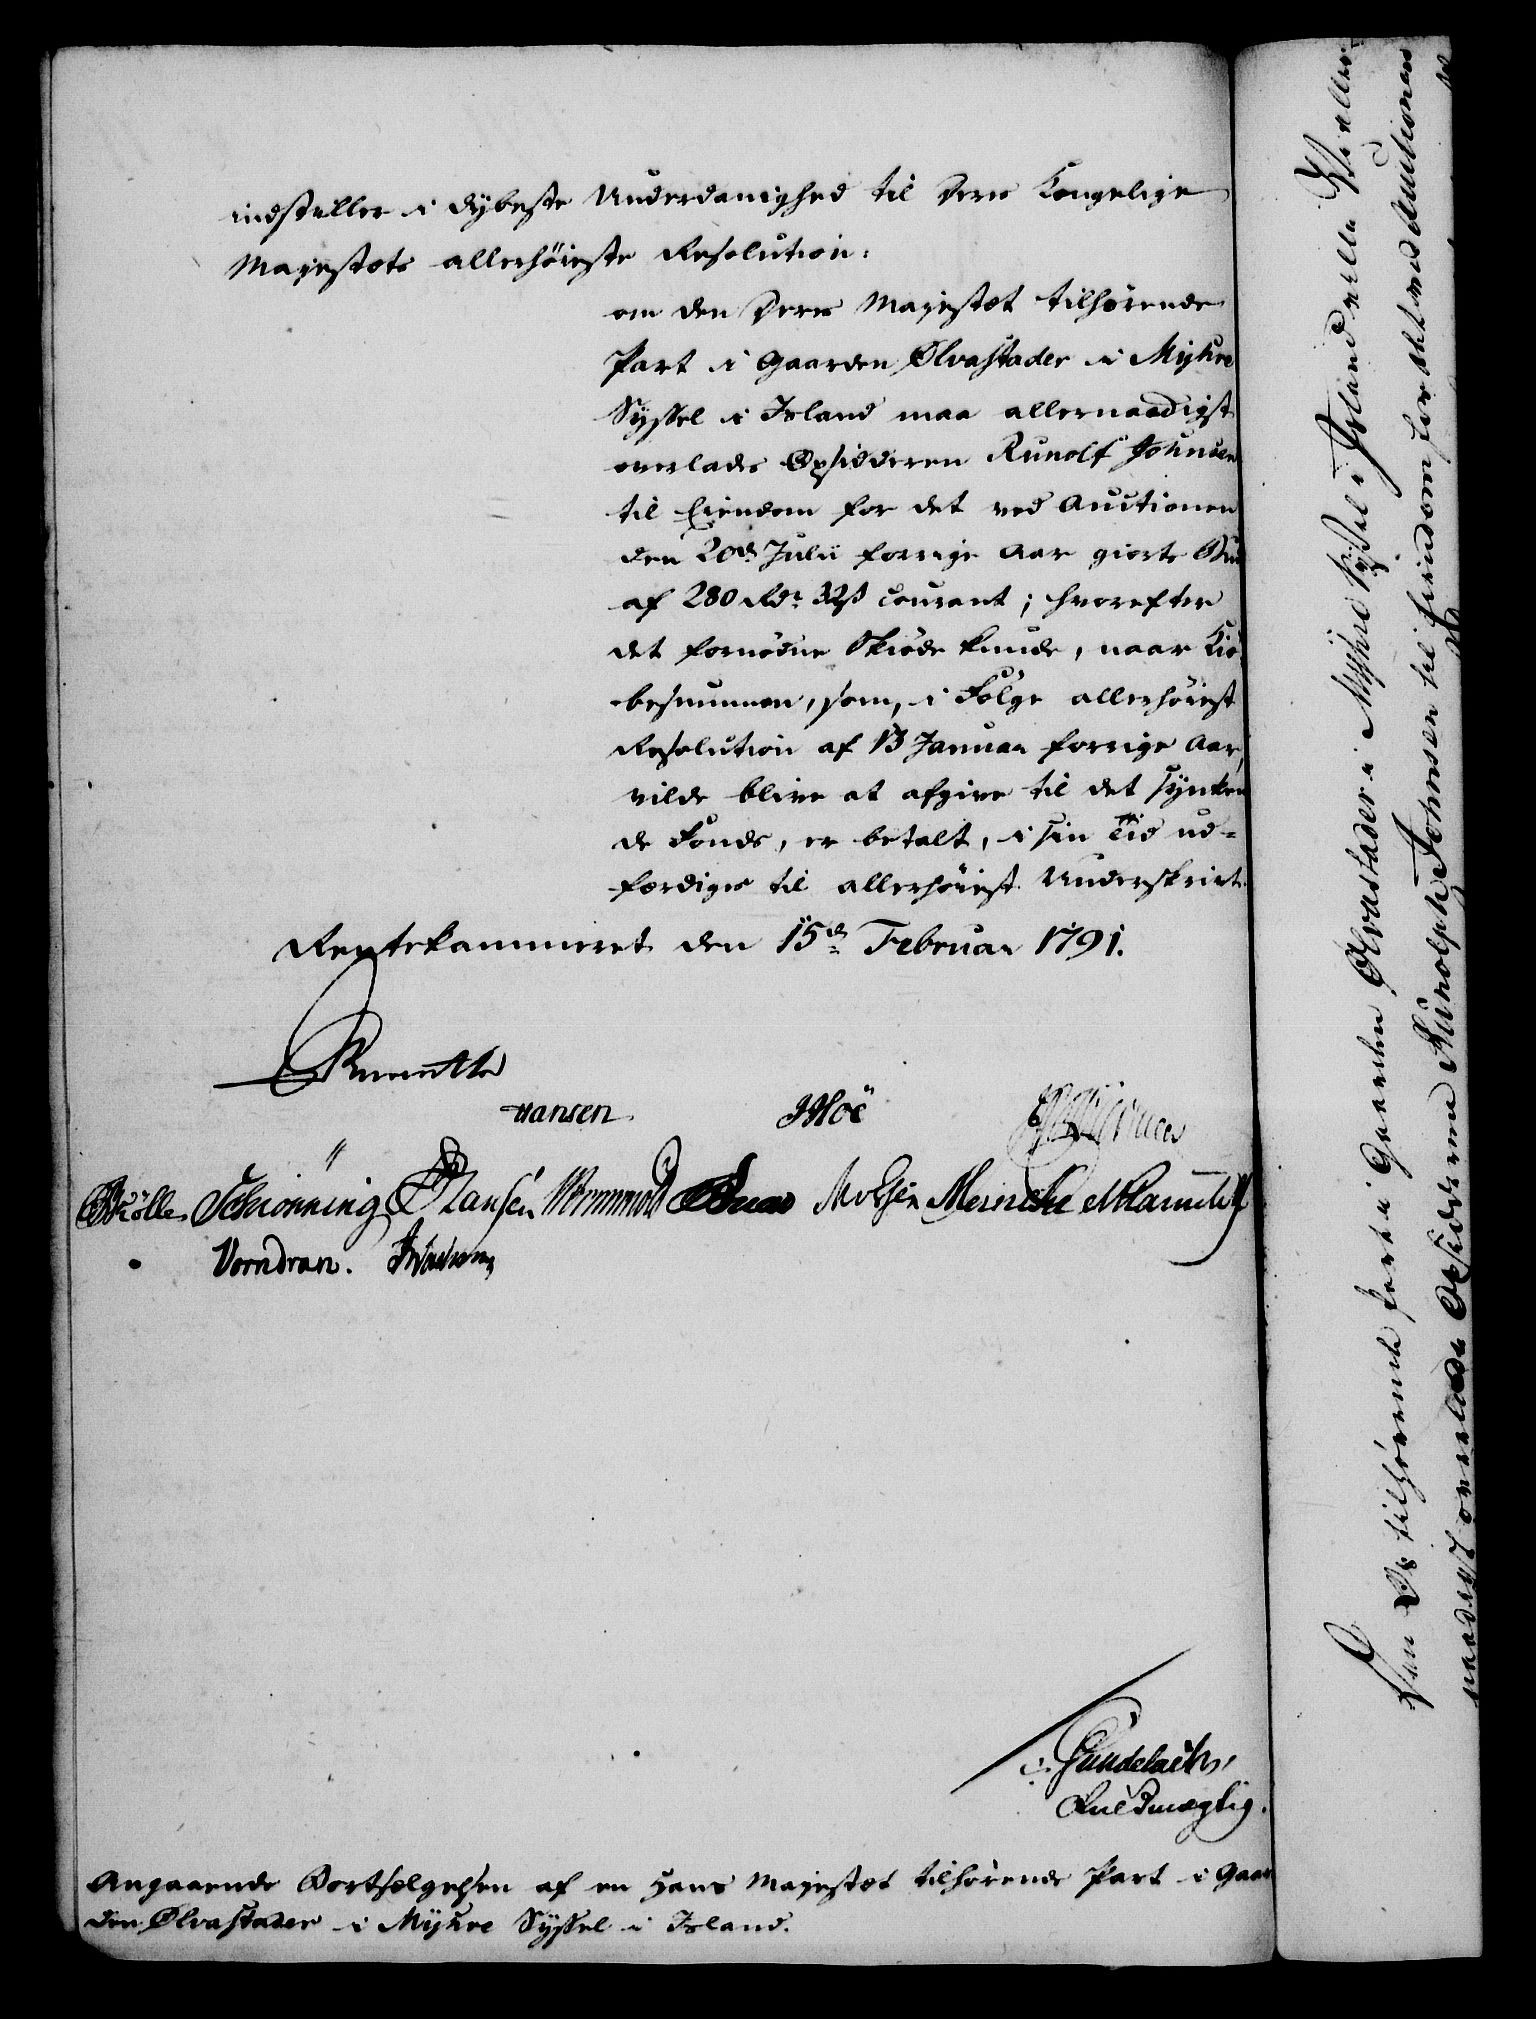 indstiller i dybeste Underdanighed til Deres Kongelige
Majestæts allerhöieste Resolution:
om den Deres Majestæt tilhörende
Part i Gaarden Ølvastader i Myhre
Syssel i Island maa allernaadigst
overlades Opsidderen Runolf Johnsen
til Eiendom for det ved Auctionen
den 20de Julii forrige Aar giorte Bud
af 280 Rdr 32 ß Courant; hvorefter
det fornödne Skiöde kunde, naar Kiö-
besummen, som, i Fölge allerhöiest
Resolution af 13 Januar forrige Aar,
vilde blive at afgive til det synken
de Fonds, er betalt, i sin Tid ud-
færdiges til allerhöiest Underskrivt.
Rentekammeret den 15de Februar 1791.
Hansen
Schiönning Clausén Meincke
Vorndran.
Gundelach,
Fuldmægtig.
Angaaende Bortsælgelsen af en Hans Majestæt tilhörende Part i Gaar
den Ølvastader i Myhre Syssel i Island.
Den Os tilhörende Part i Gaarden Ølvastader i Myhre Syssel i Island ville Vi aller
naadigst overlade Opsidderne Runolph Johnsen til Eiendom for det ved Auctionen